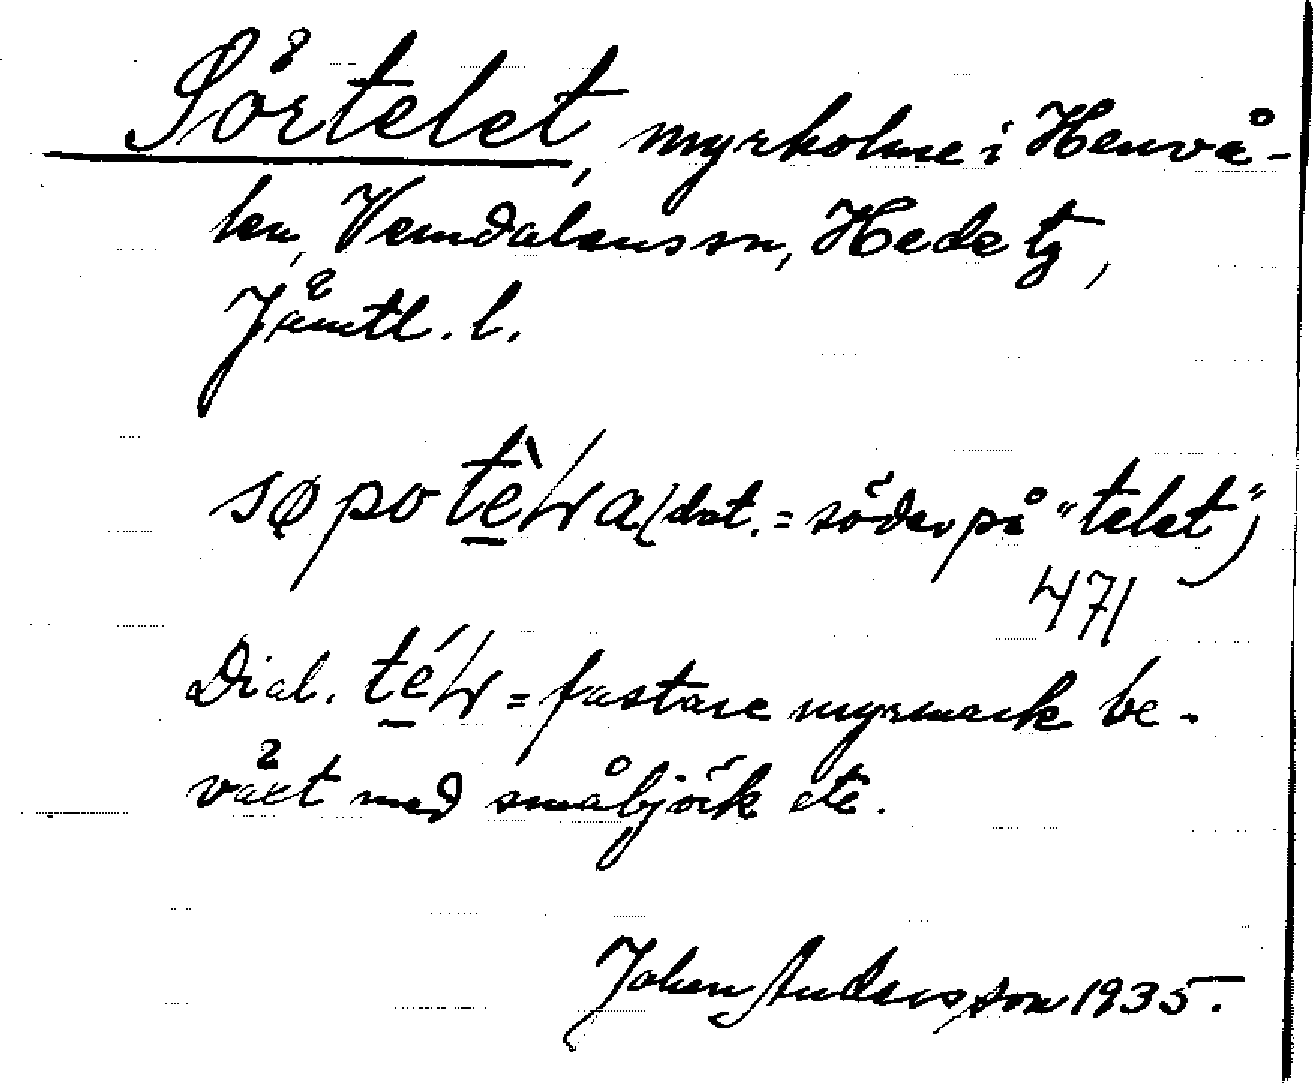 Sörtelet, myrholme i Henvå-
len, Vemdalens sn, Hede tg,
Jämtl. l.
søpo (dat. = söder på "telet")
471
Dial. = fastare myrmark be-
växt med småbjörk etc.
Johan Andersson 1935.